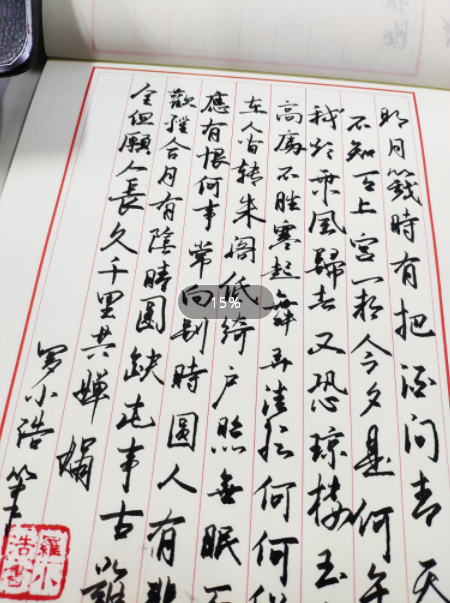 明月幾時有把酒问青天
不知天上宫一闕今夕是何年
我欲乘風歸去又恐琼楼玉
高處不胜寒起舞弄清影何何似
在人间转朱阁低绮户照無眠不
應有恨何事常向别時圓人有悲
歡離合月有陰晴圓缺此事古難
全但願人長久千里共嬋娟
罗小浩
羅小浩書
15%